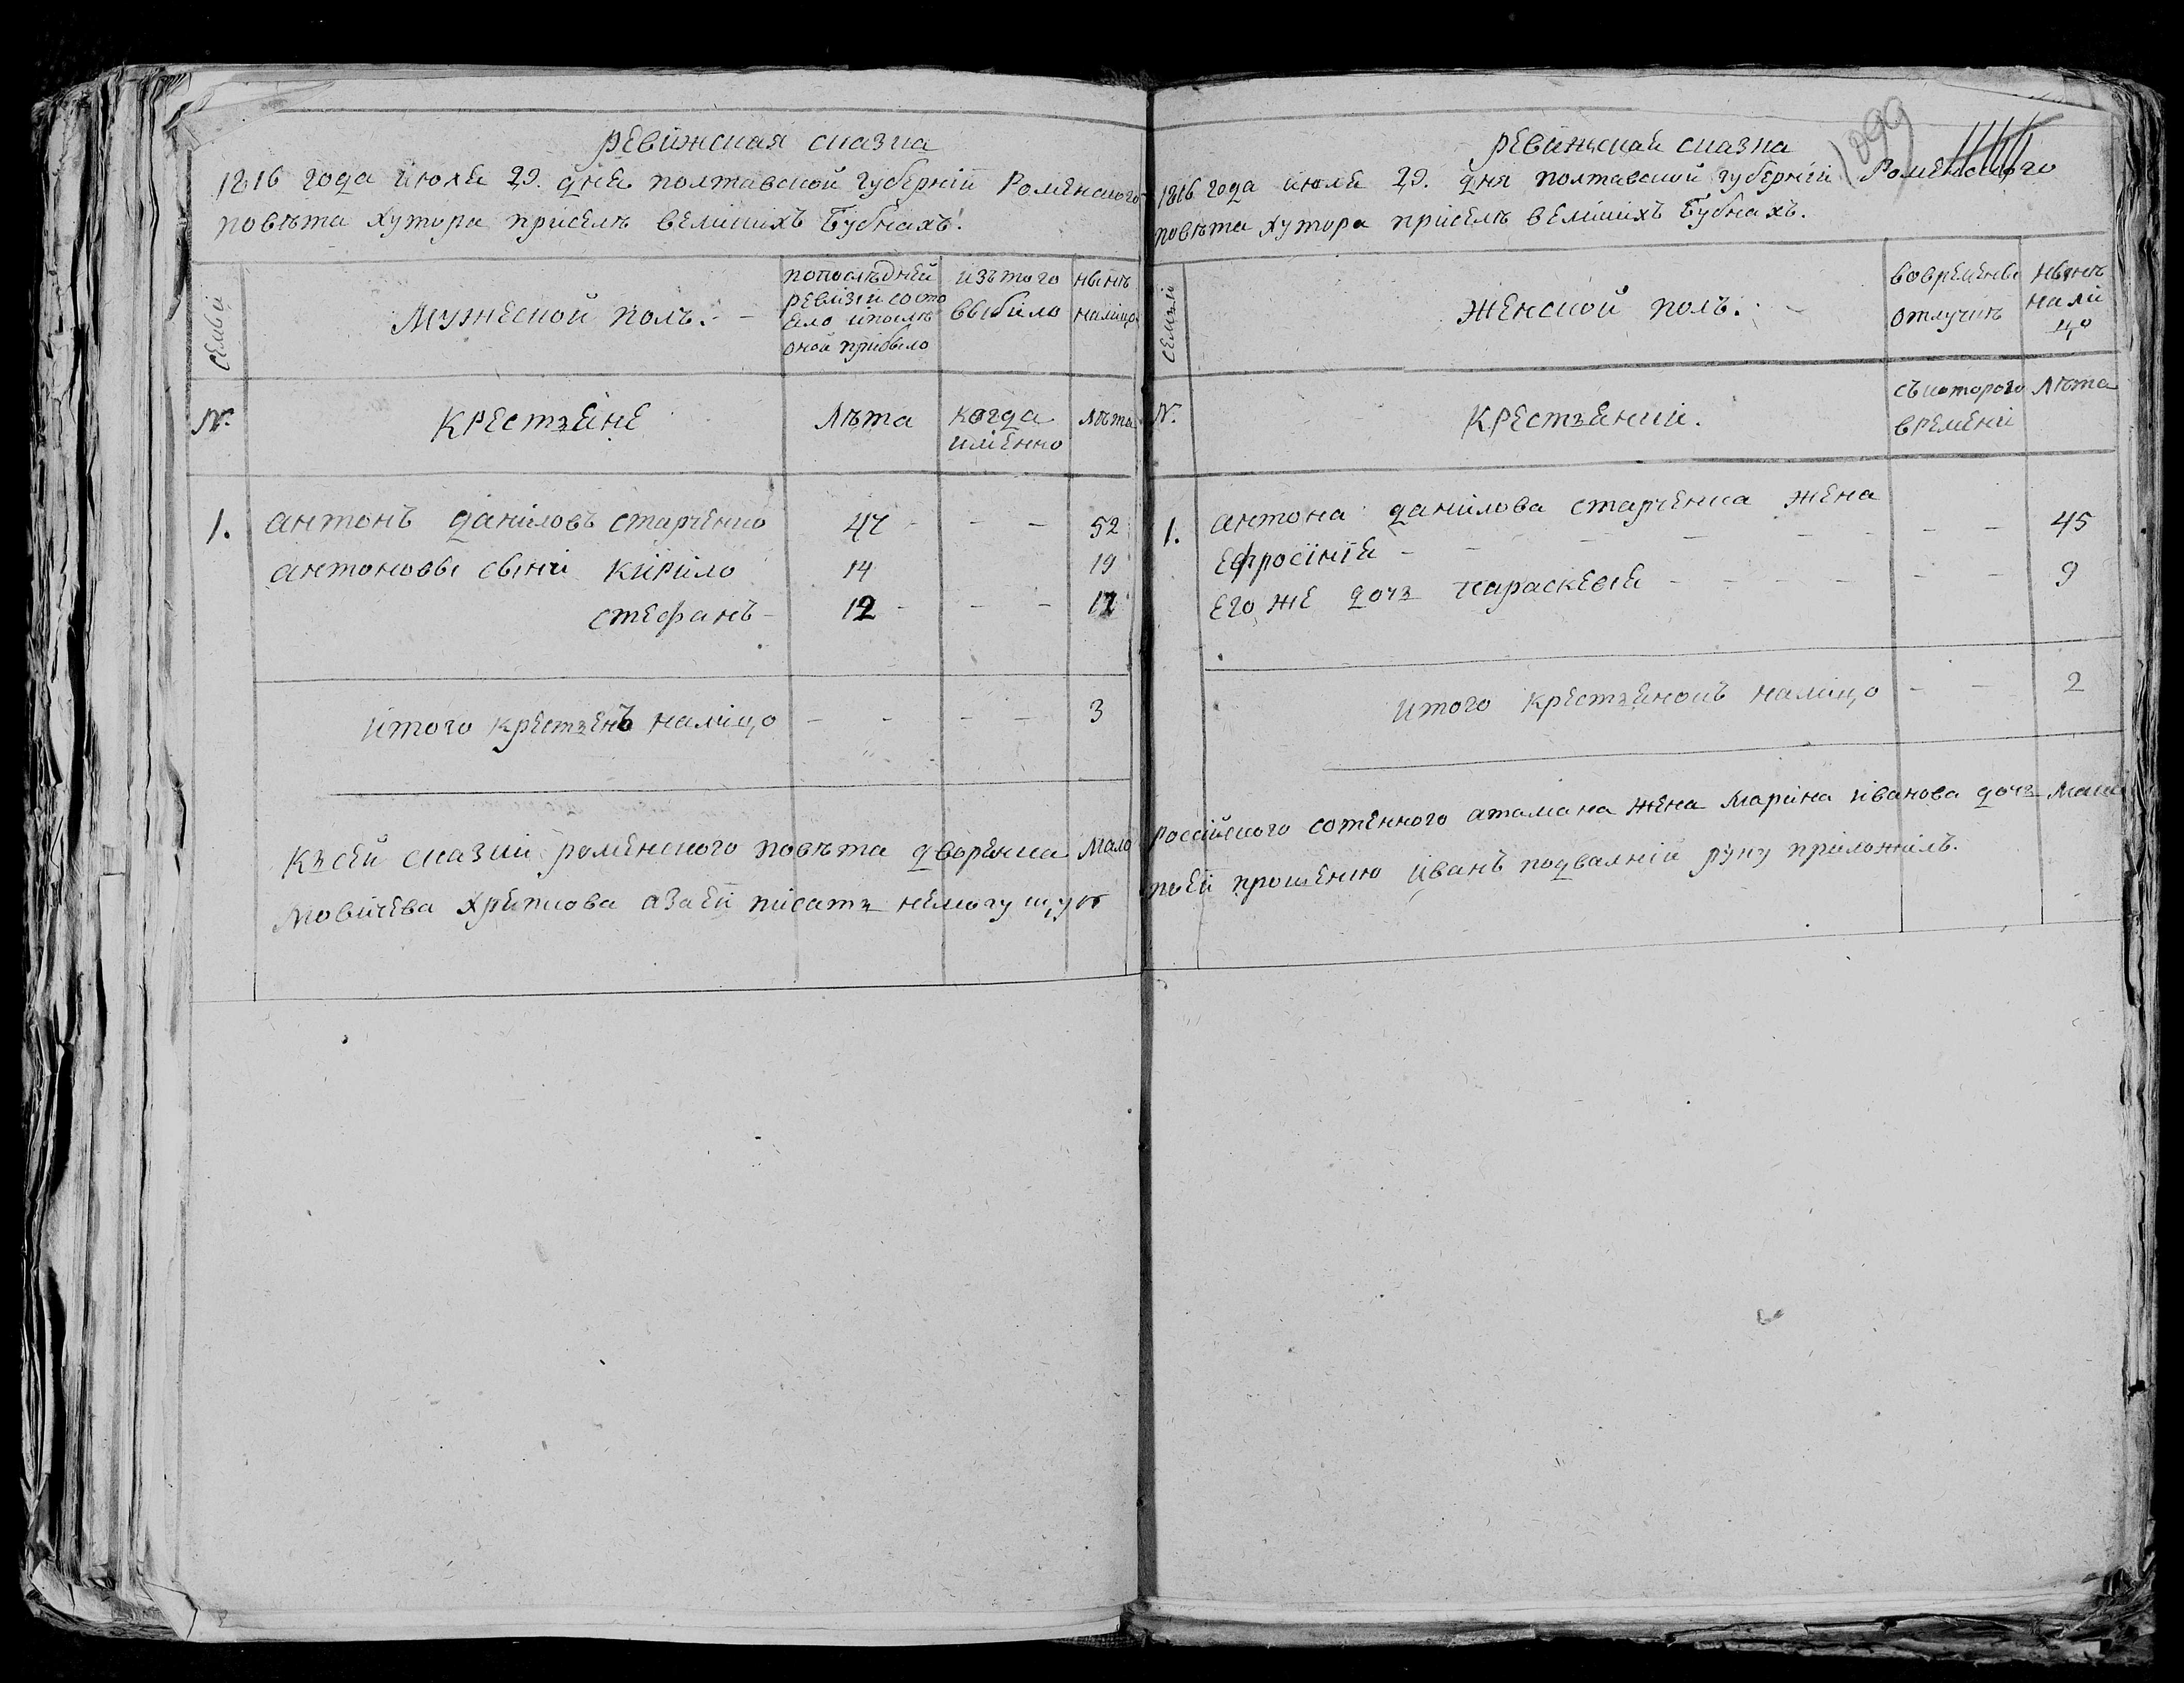 Ревижская сказка
1816 года июля 29. дня полтавской губерніи Роменского
повѣта хутора приселѣ великихъ Бубнахъ.
семьи
Мужеской полъ.
попослѣдней
ревизіи состо
яло ипослѣ
оной прибыло
изътого
выбило
нынѣ
налицо
№.
крестьяне
лѣта
когда
имѣнно
лѣта
1. антонъ даниловъ старченко 47 - - - 52
антоновы сыни кирило 14 19
стефанъ - 12 - - - 17
итого крестьянъ налицо - - - - 3
Къ сей сказки роменского повѣта дворянка Мало
мовичева азаей писать неможущую
1099
Ревижская сказка
1816 года июля 29. дня полтавской губерніи Роменского
повѣта хутора приселѣ великихъ Бубнахъ.
семьи
Женской полъ.
вовременной
отлучкѣ
нынѣ
нали
цо
№.
крестьянки.
съкоторого
времени
лѣта
1. антона данилова старченка жена
ефросинія - - - - - - - - 45
его же дочь параскевія - - - - - - 9
итого крестьянокъ налицо - - 2
россійского сотенного атамана жена Марина иванова дочь
поей прошению иванъ подвалній руку приложилъ.